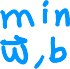 min
w⃗,b